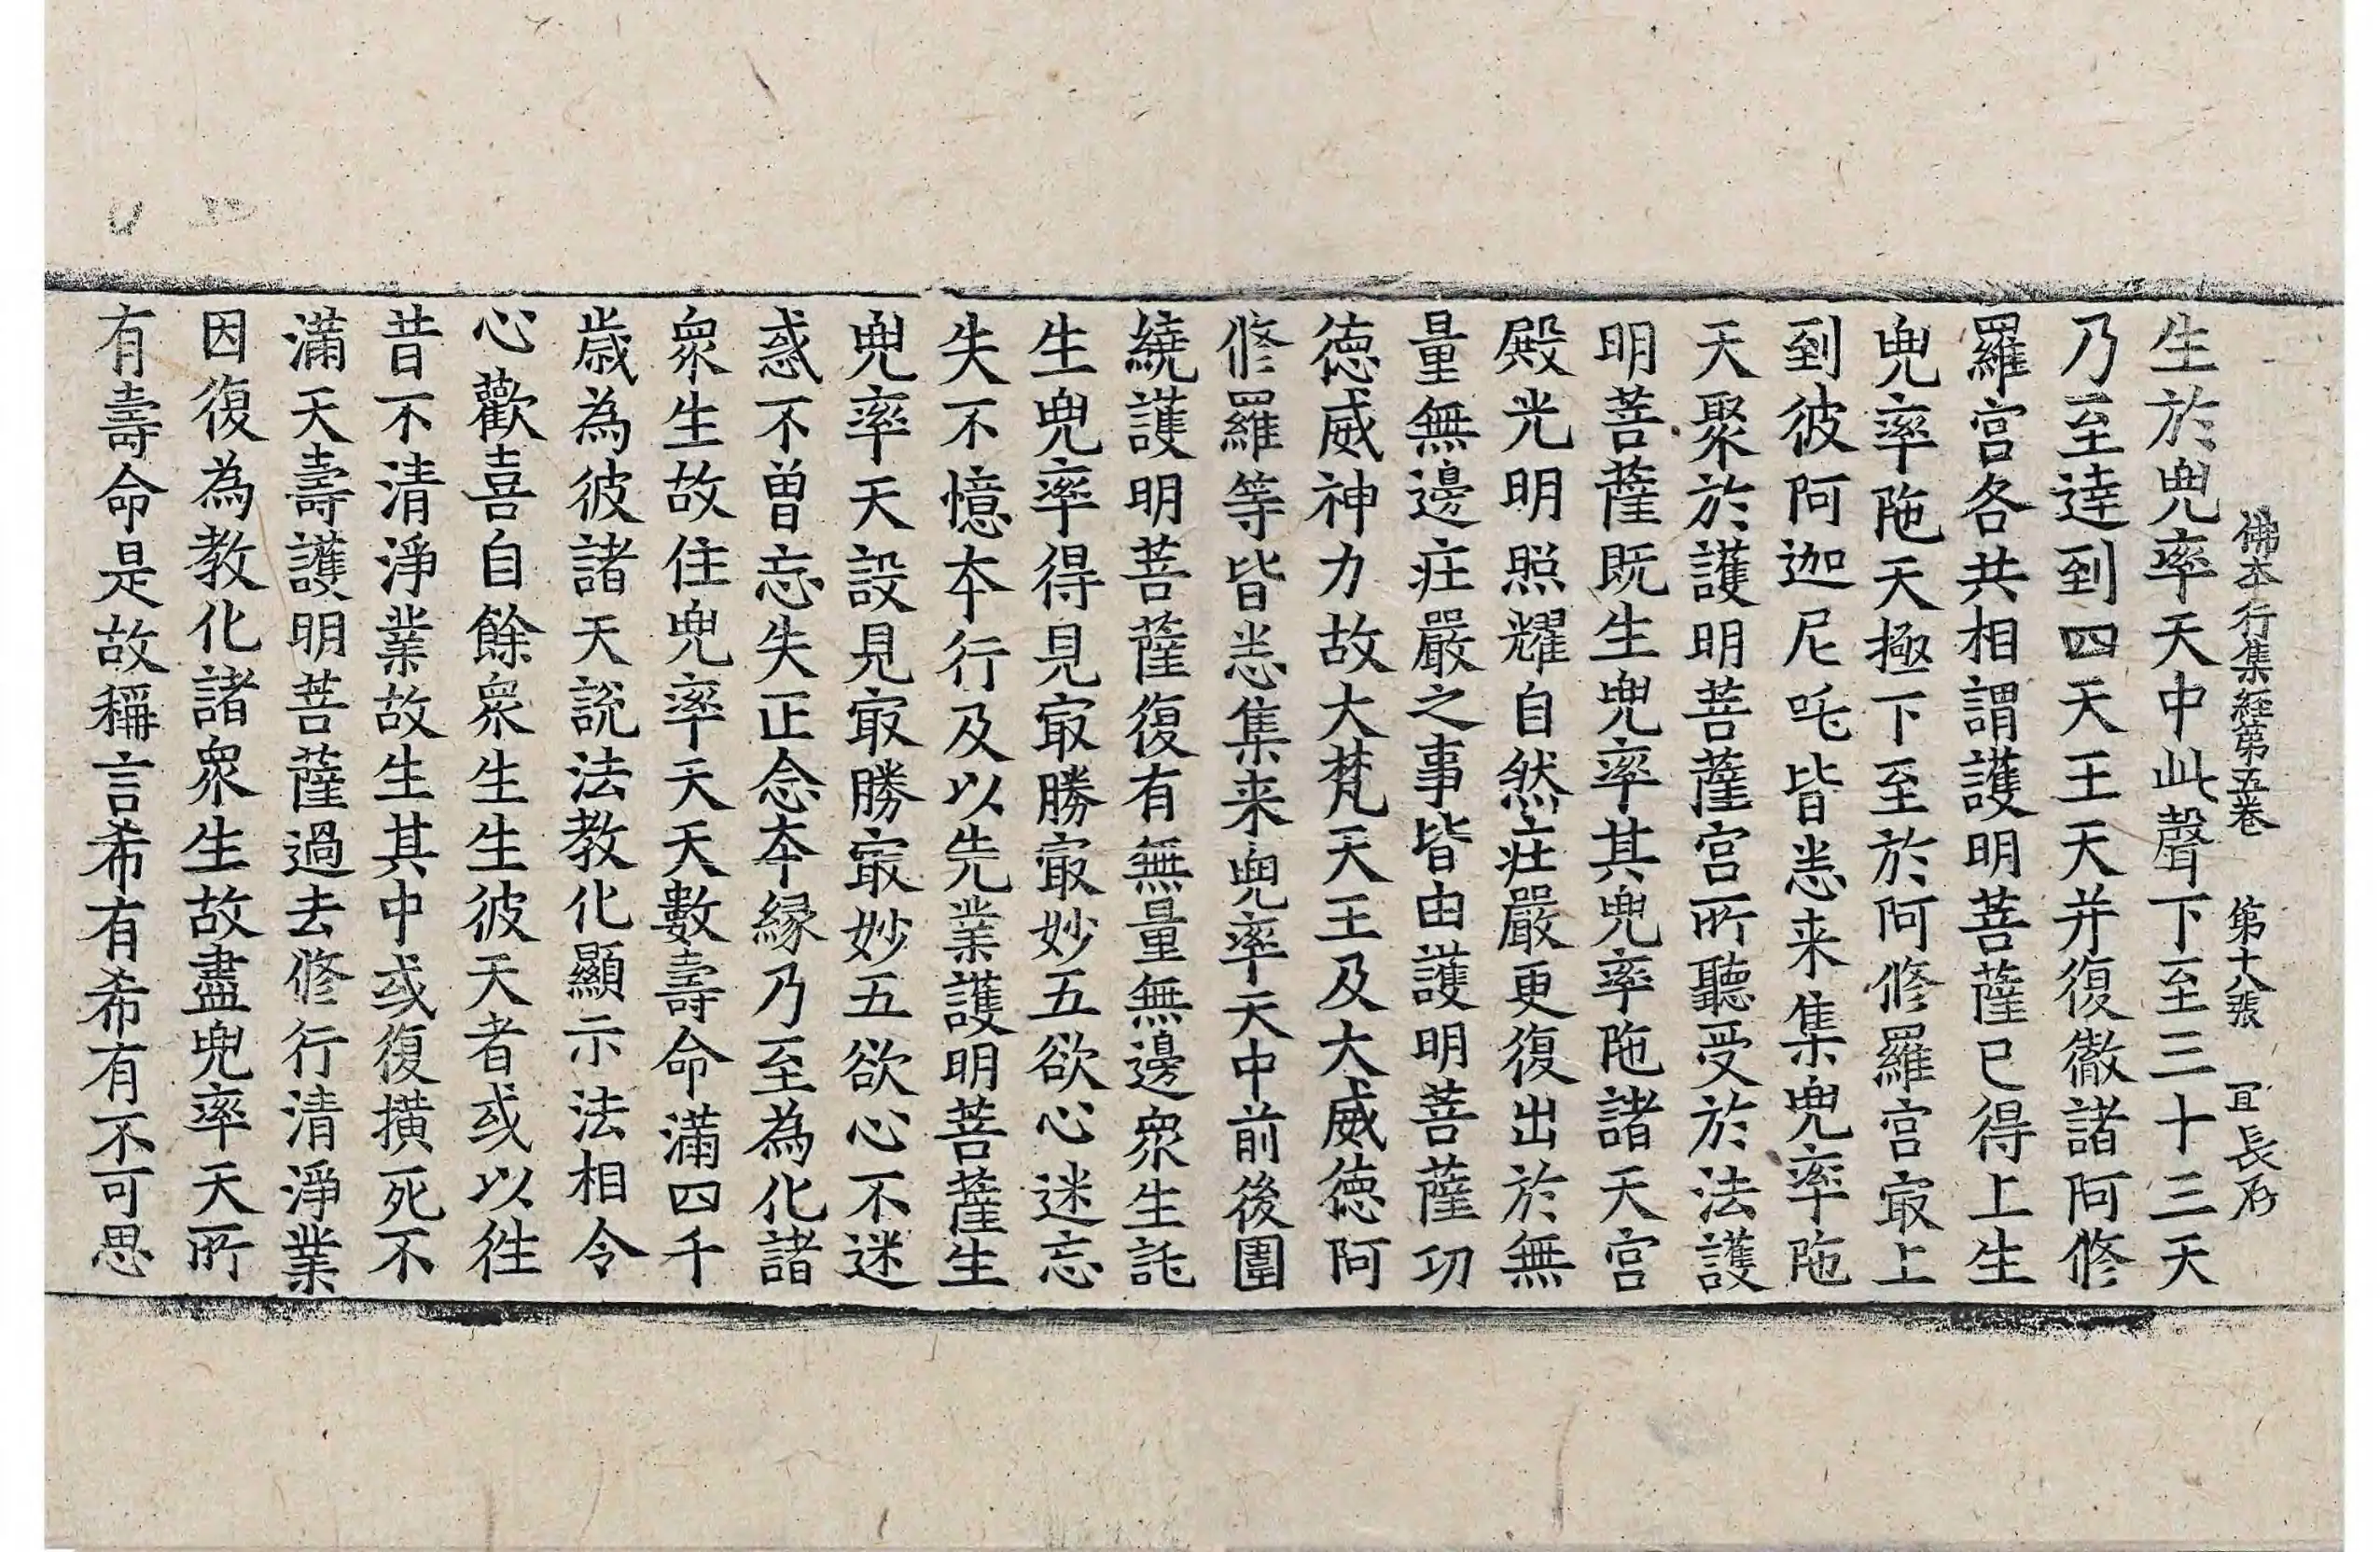 佛本行集經第五卷 第十八張 冝 長石
生於兜率天中此聲下至三十三天
乃至逹到四天王天并復徹諸阿修
羅宫各共相謂護明菩薩已得上生
兜率陁天極下至於阿修羅宫㝡上
到彼阿迦尼吒皆悉来集兜率陁
天聚於護明菩薩宫所聽受於法護
明菩薩既生兜率其兜率陁諸天宫
殿光明照耀自然㽵嚴更復出於無
量無邊㽵嚴之事皆由護明菩薩功
徳威神力故大梵天王及大威徳阿
修羅等皆悉集来兜率天中前後圍
繞護明菩薩復有無量無邊衆生託
生兜率得見㝡勝㝡妙五欲心迷忘
失不憶本行及以先業護明菩薩生
兜率天設見㝡勝㝡妙五欲心不迷
惑不曽忘失正念本縁乃至為化諸
衆生故住兜率天天數壽命滿四千
歳為彼諸天説法教化顯示法相令
心歡喜自餘衆生生彼天者或以徃
昔不清淨業故生其中或復撗死不
滿天壽護明菩薩過去修行清淨業
因復為教化諸衆生故盡兜率天所
有壽命是故稱言希有希有不可思